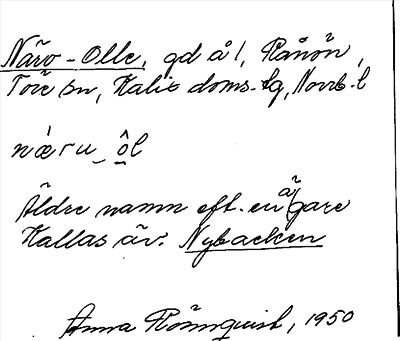 Närv-Olle, gd å 1, Rånön,
Töre sn, Kalix doms.lg, Norrb. l
næ̀ru‿ôl
Äldre namn eft. en ägare
Kallas äv. Nybacken
Anna Rönnquist, 1950